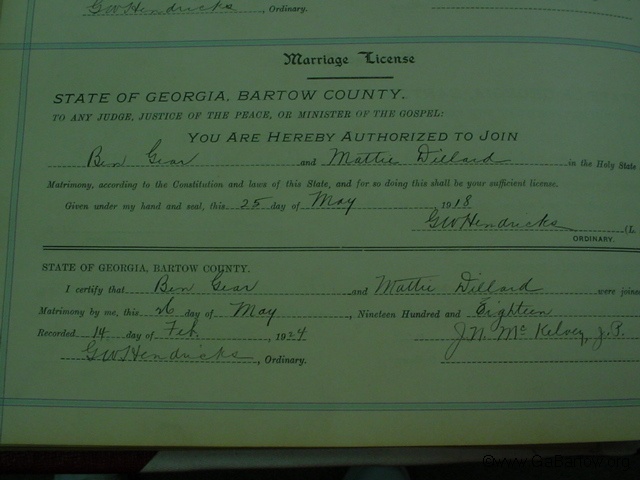 GW Hendricks, Ordinary.
Marriage License
STATE OF GEORGIA, BARTOW COUNTY.
TO ANY JUDGE, JUSTICE OF THE PEACE, OR MINISTER OF THE GOSPEL:
YOU ARE HEREBY AUTHORIZED TO JOIN
Ben Gear and Mattie Dillard in the Holy State
Matrimony, according to the Constitution and laws of this State, and for so doing this shall be your sufficient license.
Given under my hand and seal, this 25 day of May 1918
GW Hendricks (L.
ORDINARY.
STATE OF GEORGIA, BARTOW COUNTY.
I certify that Ben Gear and Mattie Dillard were joined
Matrimony by me, this 26 day of May, Nineteen Hundred and Eighteen
Recorded 14 day of Feb, 1924 J.N. McKelvey, J.P.
GW Hendricks, Ordinary.
©www.GaBartow.org